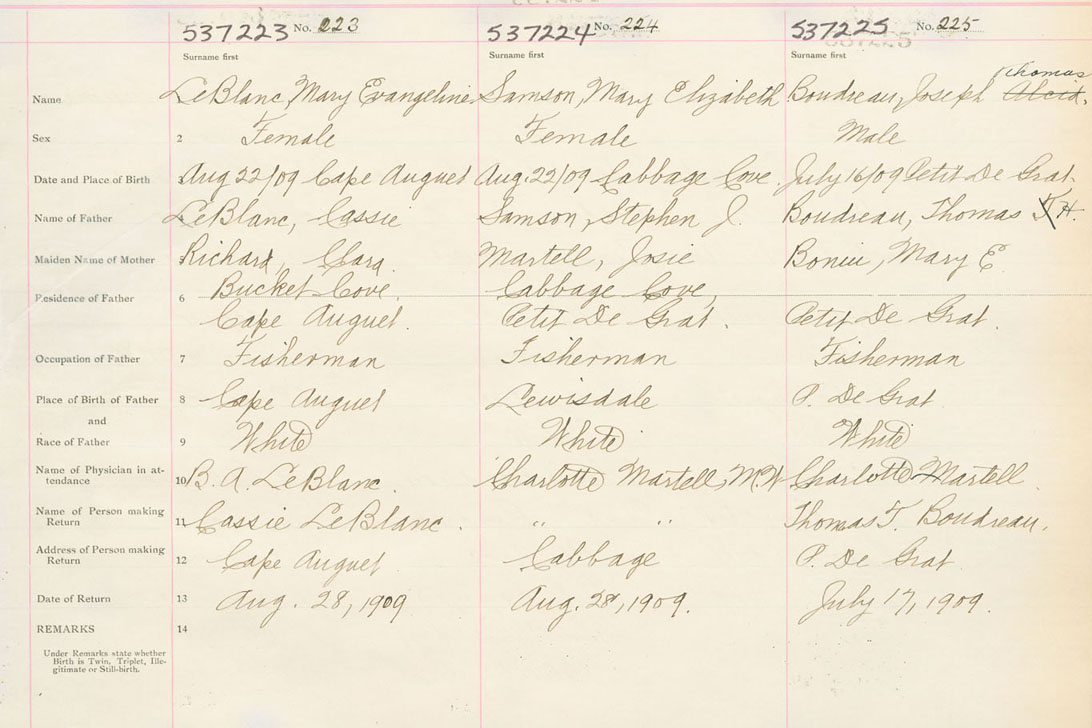 537223 No. 223 537224 No. 224 537225 No. 225
Surname first Surname first Surname first
Thomas
Name LeBlanc, Mary Evangeline Samson, Mary Elizabeth Boudreau, Joseph
Sex 2 Female Female Male
Date and Place of Birth Aug 22/09 Cape Auguet Aug. 22/09 Cabbage Cove. July 16/09 Petit De Grat.
Name of Father LeBlanc, Cassie Samson, Stephen J. Boudreau, Thomas H.
Maiden Name of Mother Richard, Clara. Martell, Josie , Mary E
Bucket Cove. Cabbage Cove,
Residence of Father 6
Cape Auguet. Petit De Grat. Petit De Grat.
Occupation of Father 7 Fisherman Fisherman Fisherman
Place of Birth of Father 8 Cape Auguet Lewisdale P. De Grat
and
Race of Father 9 White White White
Name of Physician in at-
tendance 10 B. A. LeBlanc. Charlotte Martell, M.W Charlotte Martell.
Name of Person making
Return 11 Cassie LeBlanc. " " Thomas T. Boudreau.
Address of Person making
Return 12 Cape Auguet Cabbage P. De Grat
Date of Return 13 Aug. 28, 1909 Aug. 28, 1909. July 17, 1909.
REMARKS 14
Under Remarks state whether
Birth is Twin, Triplet, Ille-
gitimate or Still-birth.